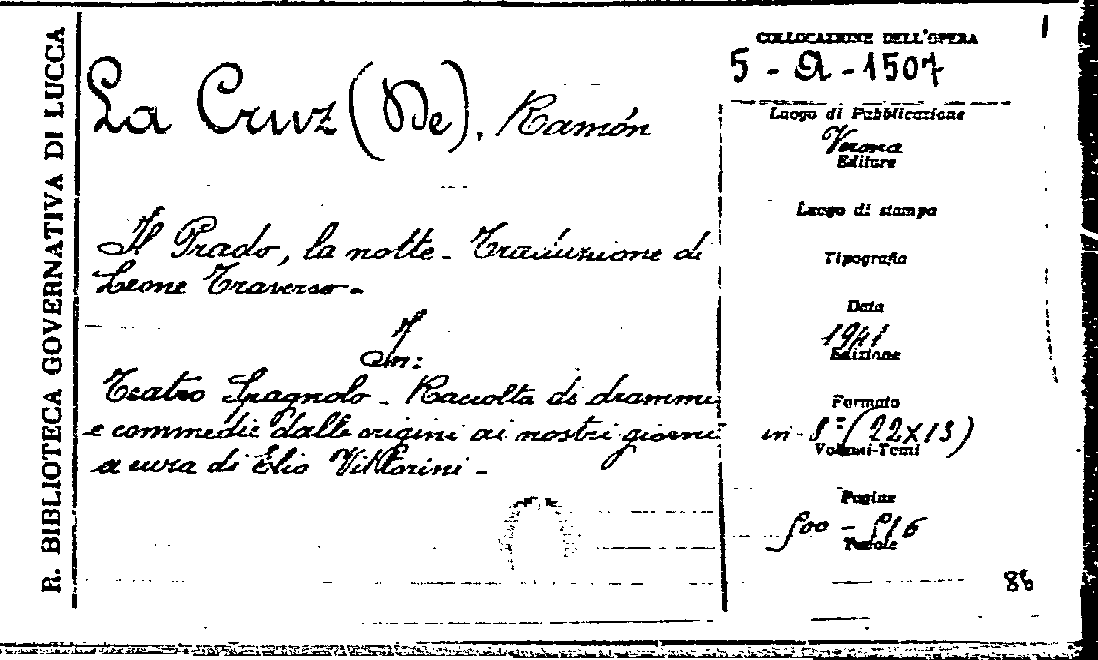 R. BIBLIOTECA GOVERNATIVA DI LUCCA
La Cruz (De), Ramón
Il Prado, la notte - Traduzione di
Leone Traverso -
In:
Teatro Spagnolo - Raccolta di drammi
e commedie dalle origini ai nostri giorni
a cura di Elio Vittorini -
COLLOCAZIONE DELL'OPERA
5 - A - 1507
Luogo di Pubblicazione
Verona
Editore
Luogo di stampa
Tipografia
Data
1941
Edizione
Formato
in - 8° (22x13)
Volumi-Tomi
Pagine
500 - 516
Tavole
86